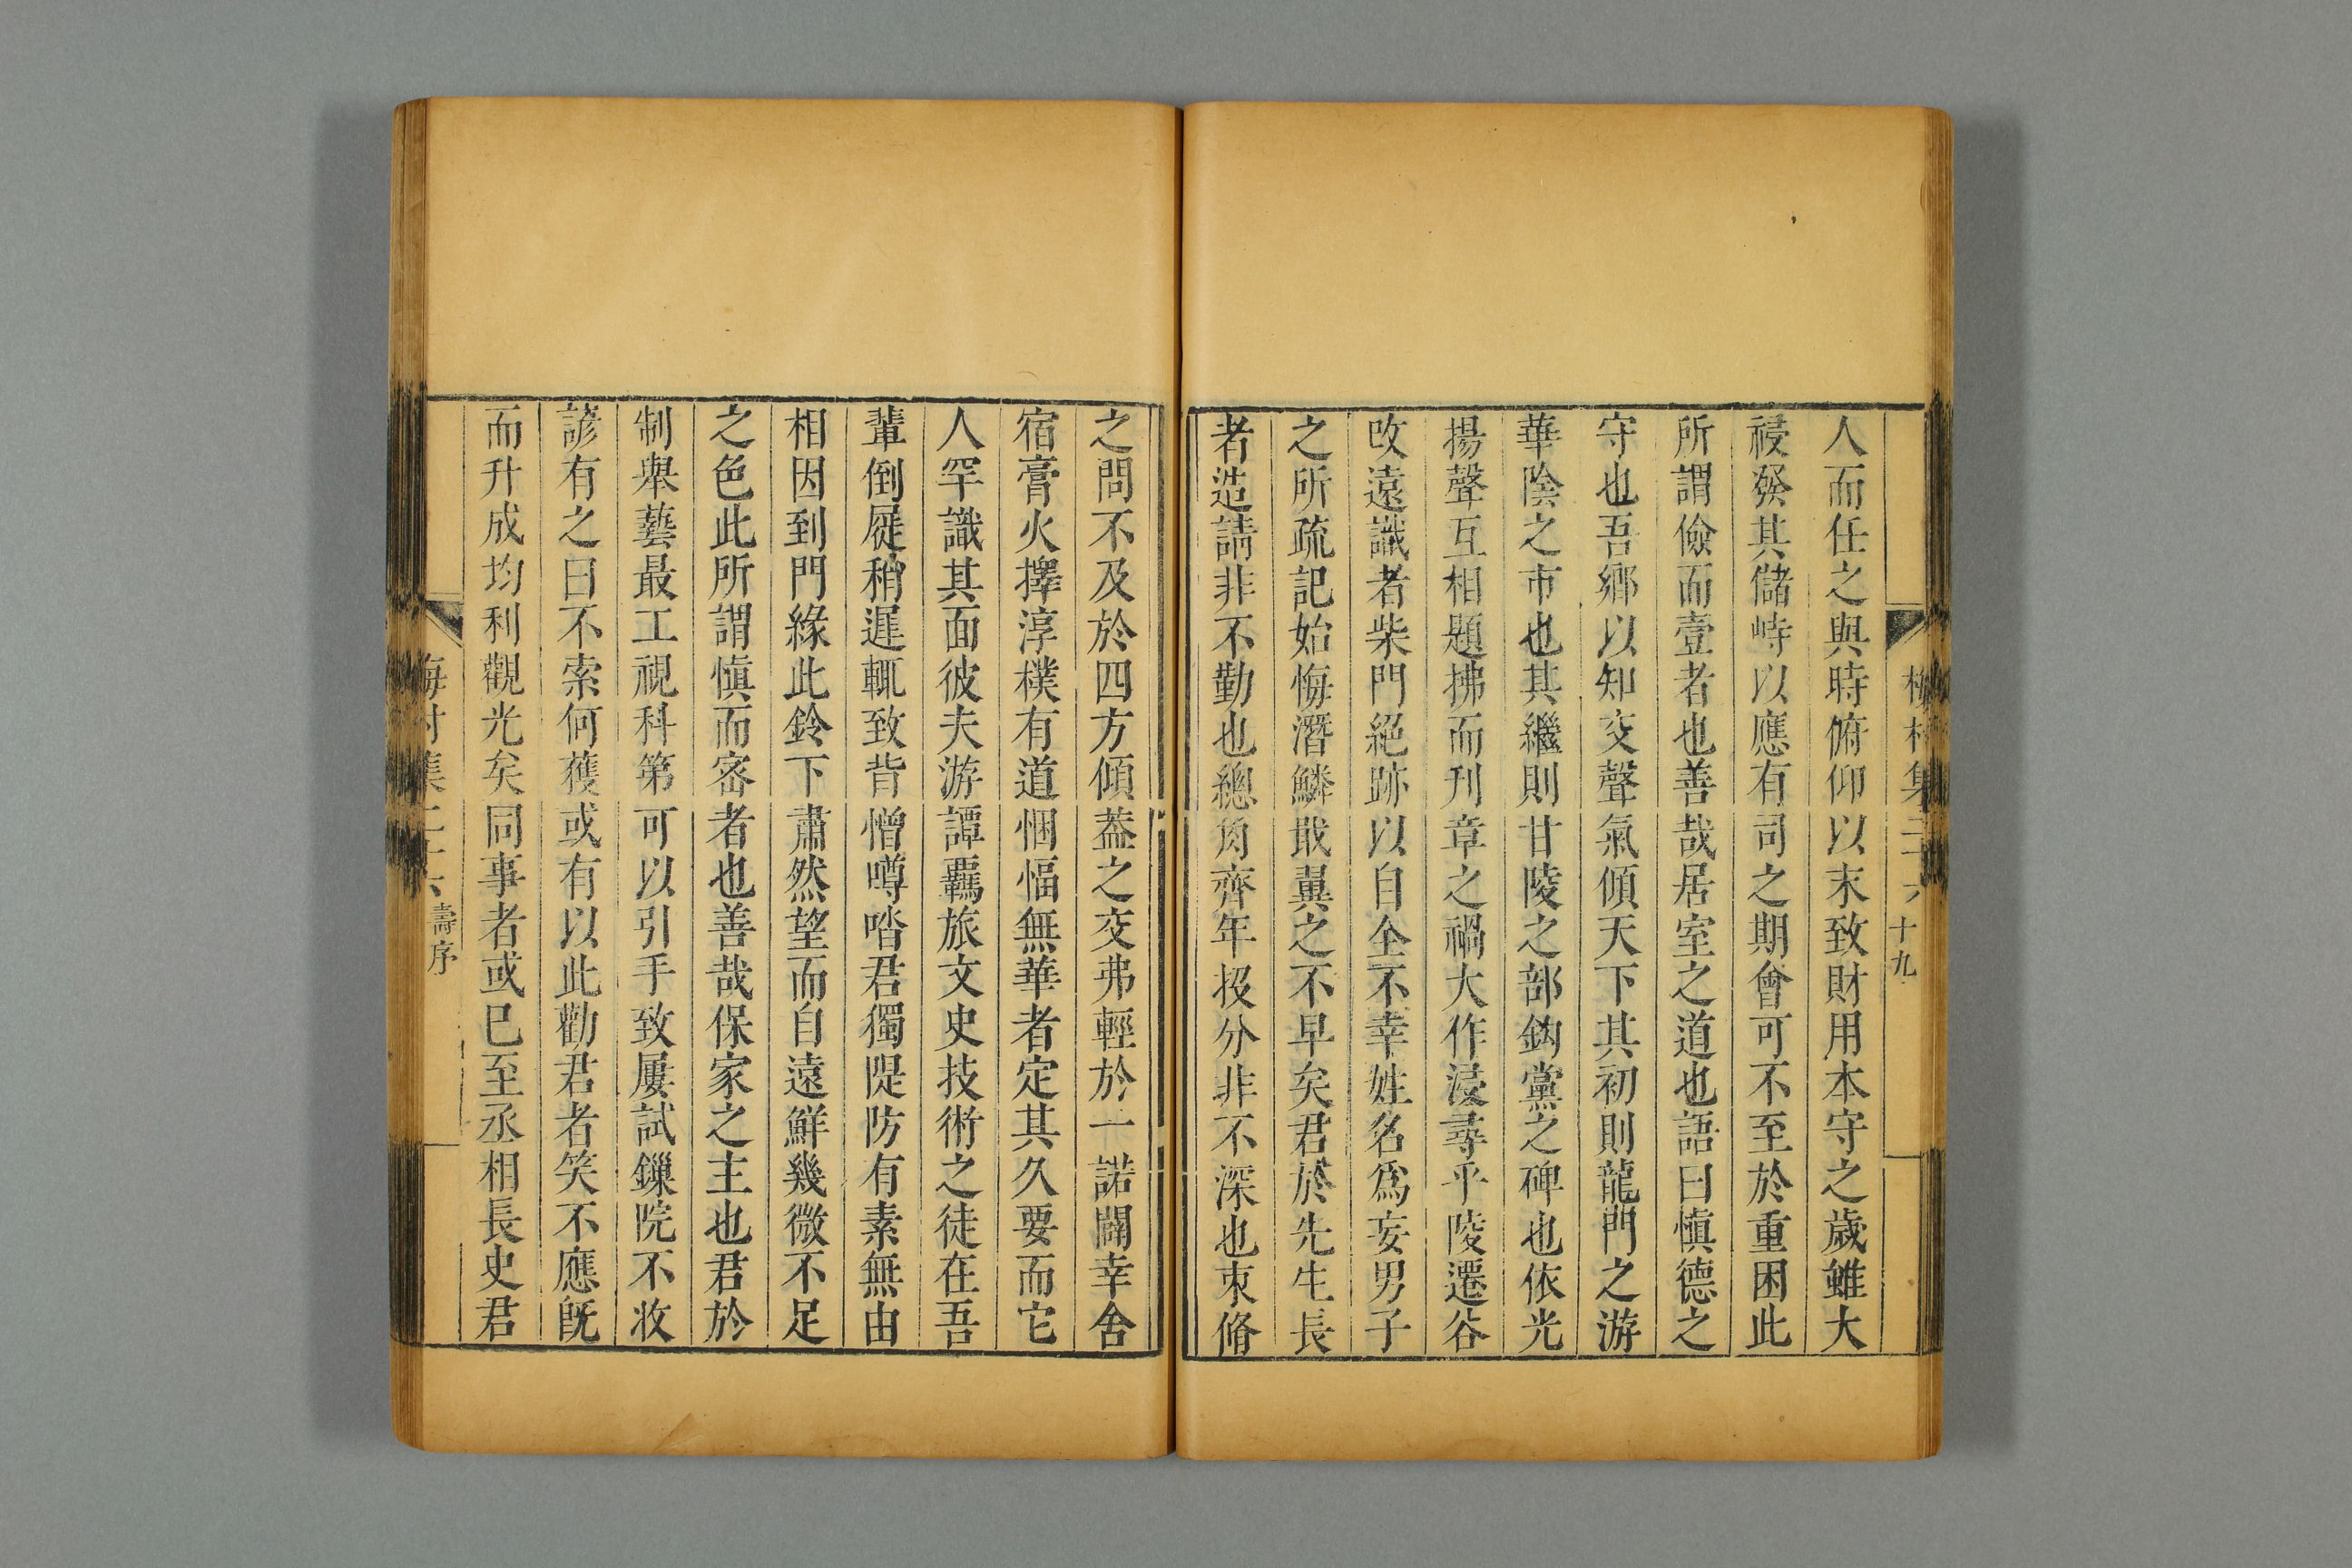 梅村集二十六
十九
人而任之與時俯仰以末致財用本守之歲雖大
祲發其儲峙以應有司之期會可不至於重困此
所謂儉而壹者也善哉居室之道也語曰愼德之
守也吾鄉以知交聲氣傾天下其初則龍門之游
華陰之市也其繼則甘陵之部鈎黨之碑也依光
揚聲互相題拂而刋章之禍大作浸尋乎陵遷谷
改遠識者柴門絕跡以自全不幸姓名爲妄男子
之所疏記始悔潛鱗戢翼之不早矣君於先生長
者造請非不勤也總角齊年投分非不深也束脩
之問不及於四方傾葢之交弗輕於一諾闢幸舍
宿膏火擇淳樸有道悃愊無華者定其久要而它
人罕識其面彼夫游譚羈旅文史技術之徒在吾
輩倒屣稍遲輒致背憎噂喈君獨隄防有素無由
相因到門緣此鈴下肅然望而自遠鮮幾微不足
之色此所謂愼而密者也善哉保家之主也君於
制舉藝最工視科第可以引手致屢試鏁院不收
諺有之曰不索何獲或有以此勸君者笑不應旣
而升成均利觀光矣同事者或已至丞相長史君
梅村集二十六
壽序